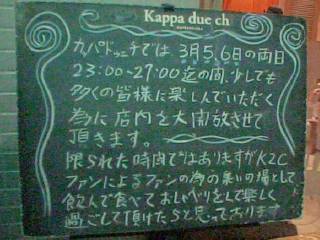 Kappa due ch
カパドゥエチでは3月5,6日の両日
23:00〜27:00迄の間、少しでも
多くの皆様に楽しんでいただく
為に店内を大開放させて
頂きます。
限られた時間ではありますがK2C
ファンによるファンの為の集いの場として
飲んで食べておしゃべりをして楽しく
過ごして頂けたらと思っております